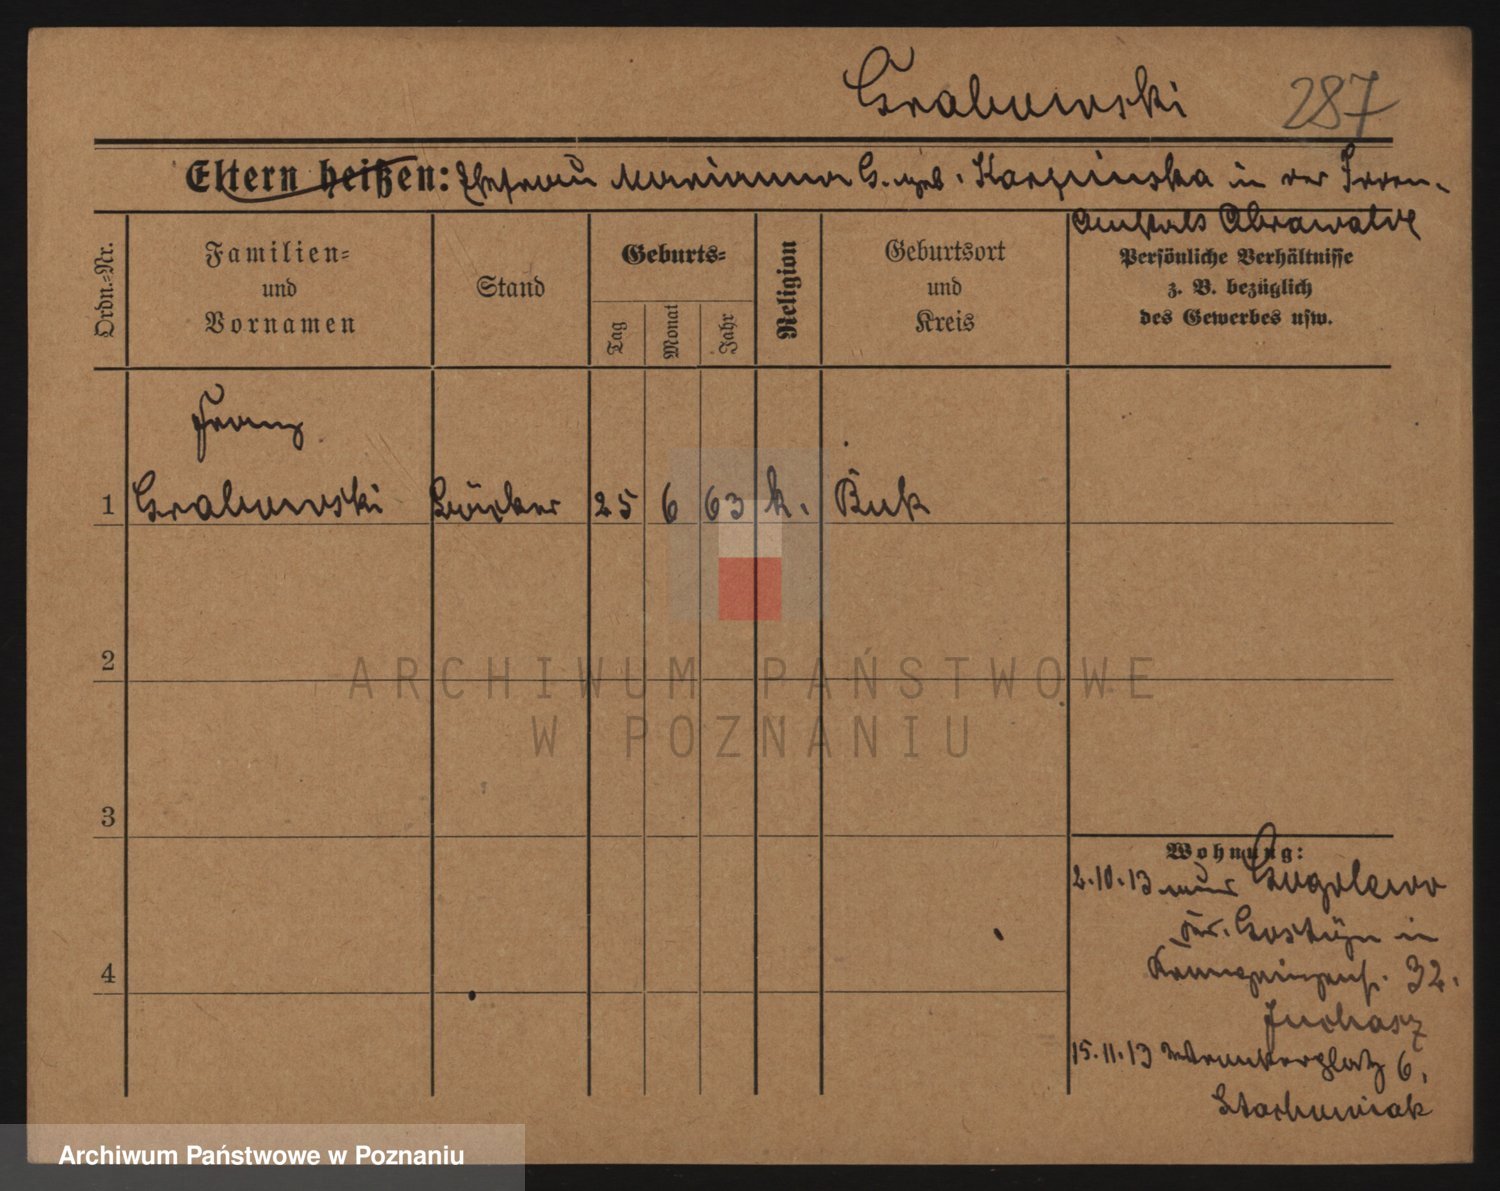 Grabowski 287
Eltern heißen: Ehefrau Marianna G. geb. Karpinska in der Irren-
anstalt Obrawalde
Ordn.-Nr.
Familien-
und
Vornamen
Stand
Geburts-
Tag
Monat
Jahr
Religion
Geburtsort
und
Kreis
Persönliche Verhältnisse
z. B. bezüglich
des Gewerbes usw.
Franz
1 Grabowski 25 6 63 k. Buk
2
3
4
Wohnung:
2.10.13 Gogolewo
Kr. Gostyn in
Kronprinzenst. 32.
Juchasz
15.11.13 6,
Stachowiak
ARCHIWUM PAŃSTWOWE
W POZNANIU
Archiwum Państwowe w Poznaniu